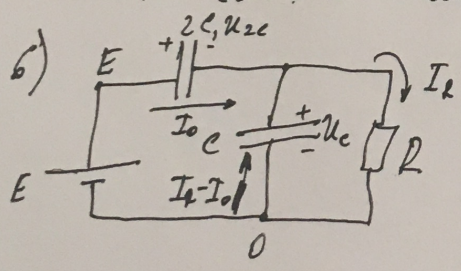 б)
E
+ - 2C, U2C
I0
IR
C
+ - UC
R
E
IR-I0
O